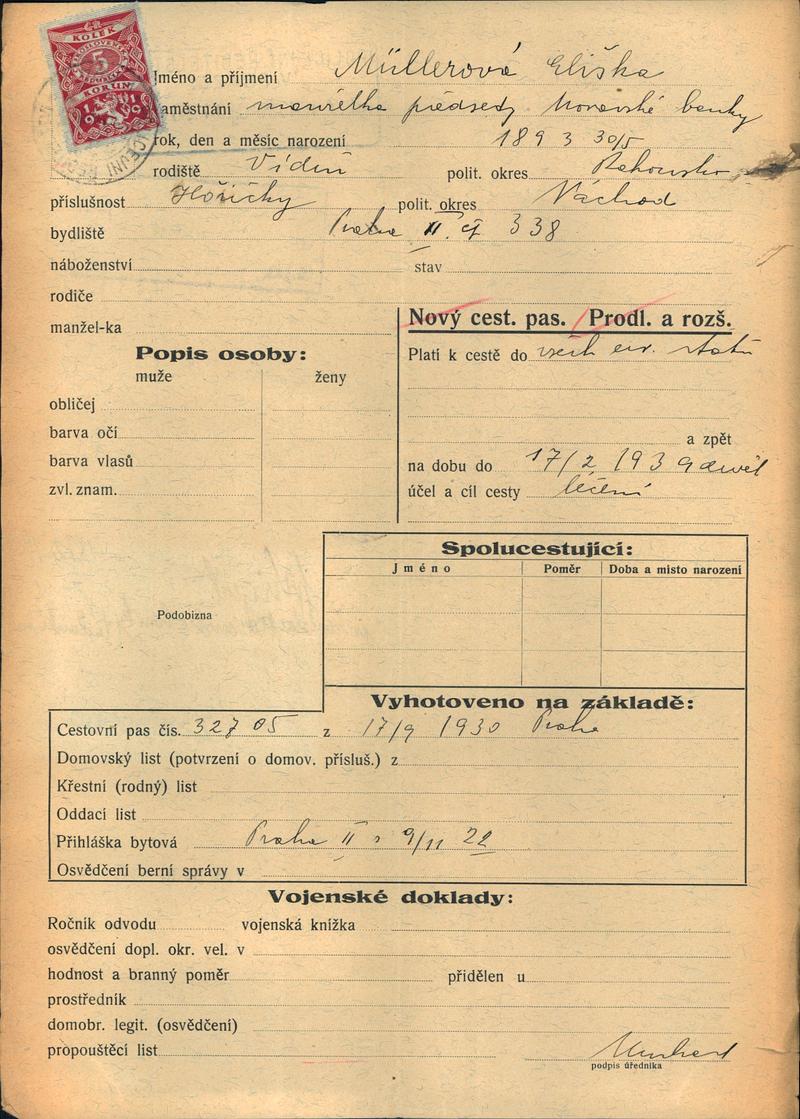 KOLEK
5
KORUN
1919
Jméno a příjmení Müllerová Eliška
zaměstnání manželka předsedy Moravské banky
rok, den a měsíc narození 1893 30/5
rodiště Vídeň polit. okres Rakousko
příslušnost Hořičky polit. okres Náchod
bydliště Praha II. čp 338
náboženství stav
rodiče
manžel-ka
Nový cest. pas. Prodl. a rozš.
Popis osoby:
Platí k cestě do všech evr. států
muže ženy
obličej
barva očí
a zpět
barva vlasů
na dobu do 17/2 1939
zvl. znam.
účel a cíl cesty léčení
Spolucestující:
Jméno Poměr Doba a místo narození
Podobizna
Vyhotoveno na základě:
Cestovní pas čís. 32705 z 17/9 1930 Praha
Domovský list (potvrzení o domov. přísluš.) z
Křestní (rodný) list
Oddací list
Přihláška bytová Praha II 9/11 22
Osvědčení berní správy v
Vojenské doklady:
Ročník odvodu vojenská knížka
osvědčení dopl. okr. vel. v
hodnost a branný poměr přidělen u
prostředník
domobr. legit. (osvědčení)
propouštěcí list
podpis úředníka